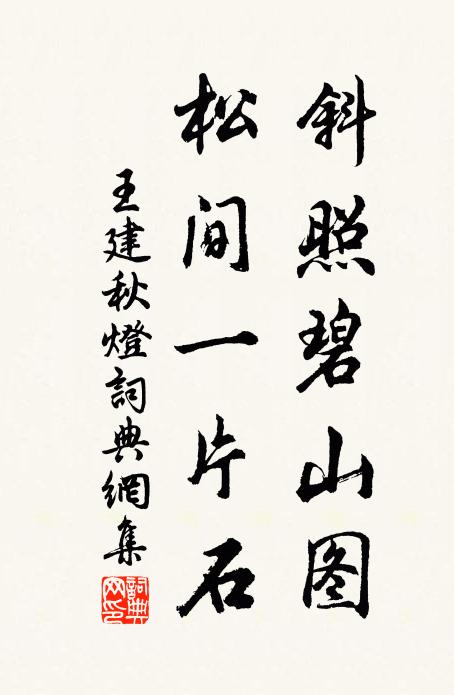 斜照碧山图
松间一片石
王建秋燈詞典網集
詞典網印